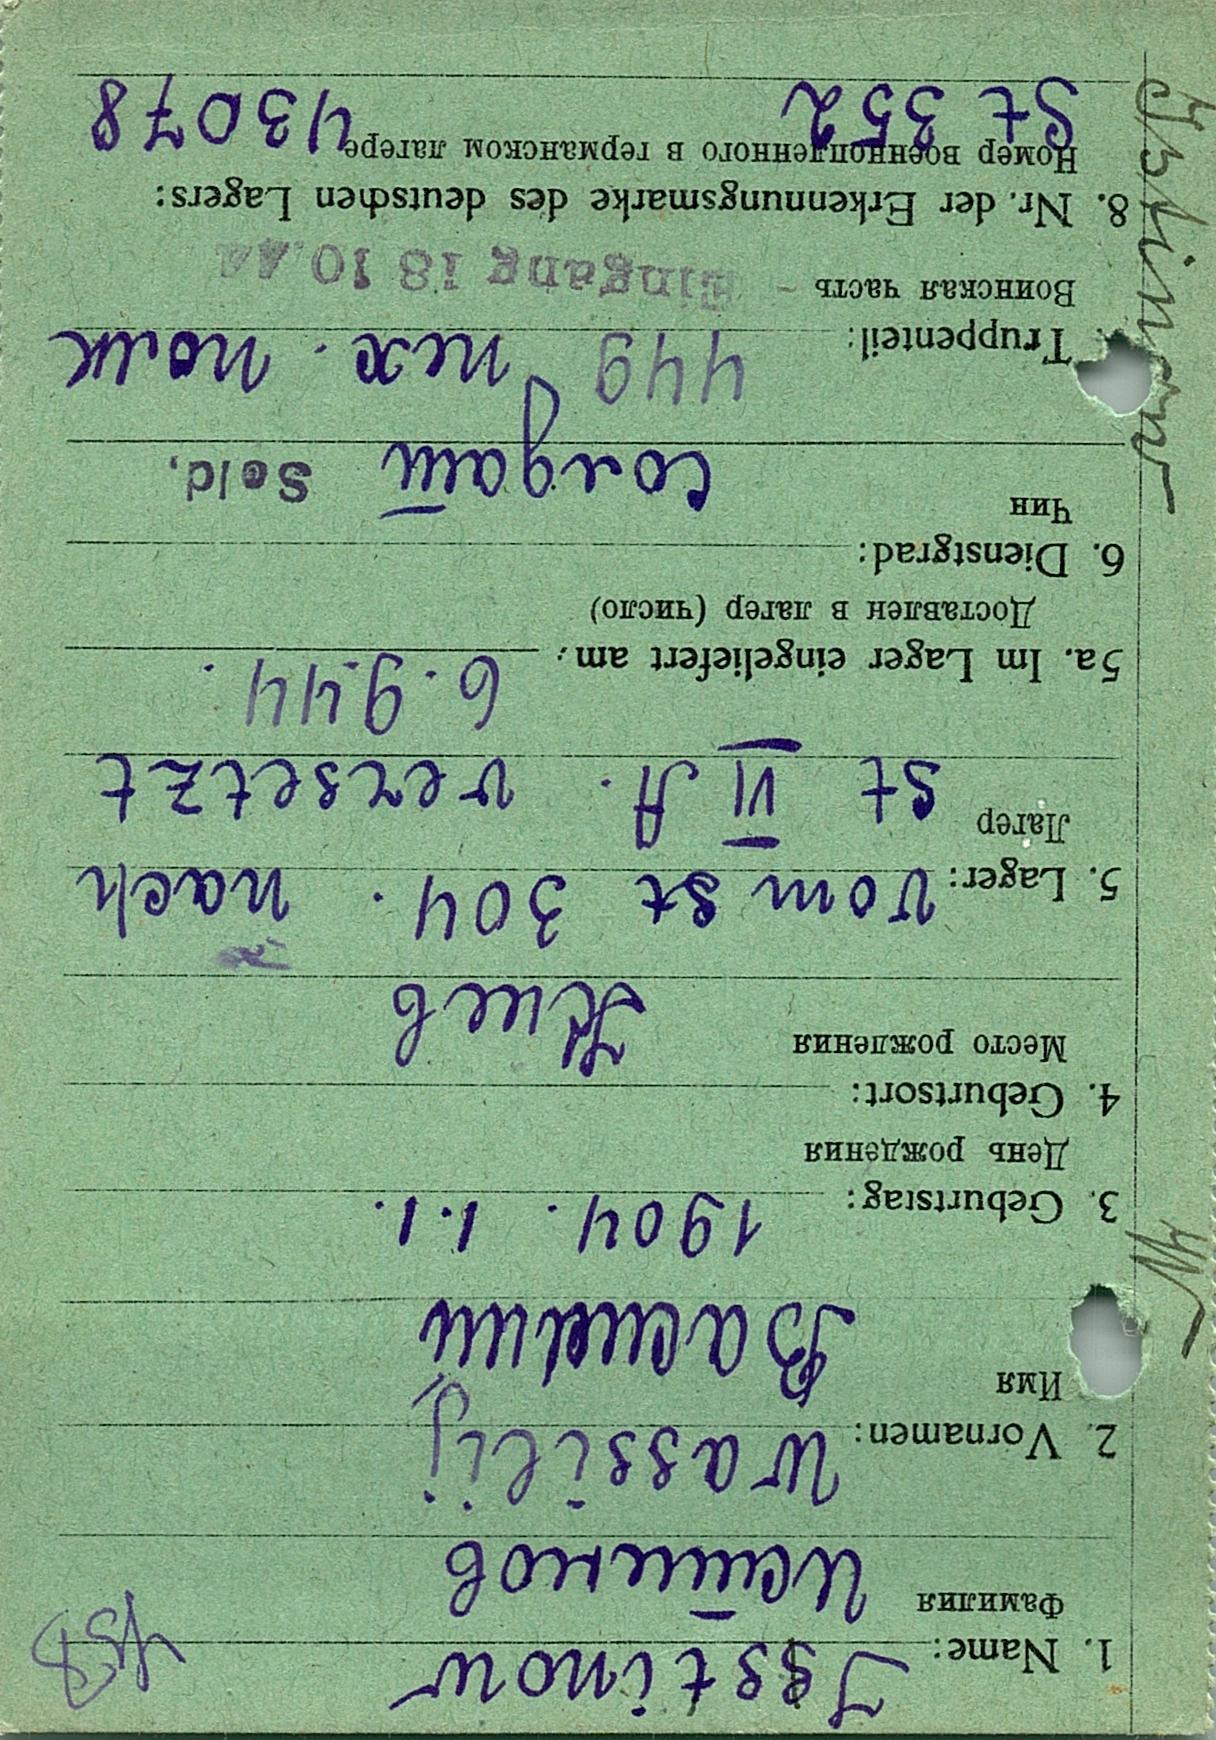 1. Name: Isstinow
Фамилия Истинов
2. Vornamen: Wassilij
Имя Василий
3. Geburtstag: 1904. 1.1.
День рождения
4. Geburtsort:
Место рождения Киев
5. Lager: vom St 304. nach
Лагер St VI A. versetzt
5a. Im Lager eingeliefert am: 6.9.44.
Доставлен в лагер (число)
6. Dienstgrad:
Чин
Солдат Sold.
Truppenteil: 449 пех. полк
Воинская часть - Eingang 18 10.44
8. Nr. der Erkennungsmarke des deutschen Lagers:
Номер военнопленного в германском лагере
St 352 43078